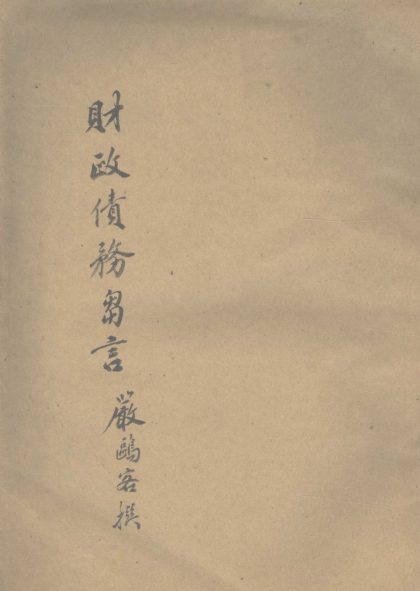 財政債務芻言
嚴鷗客撰